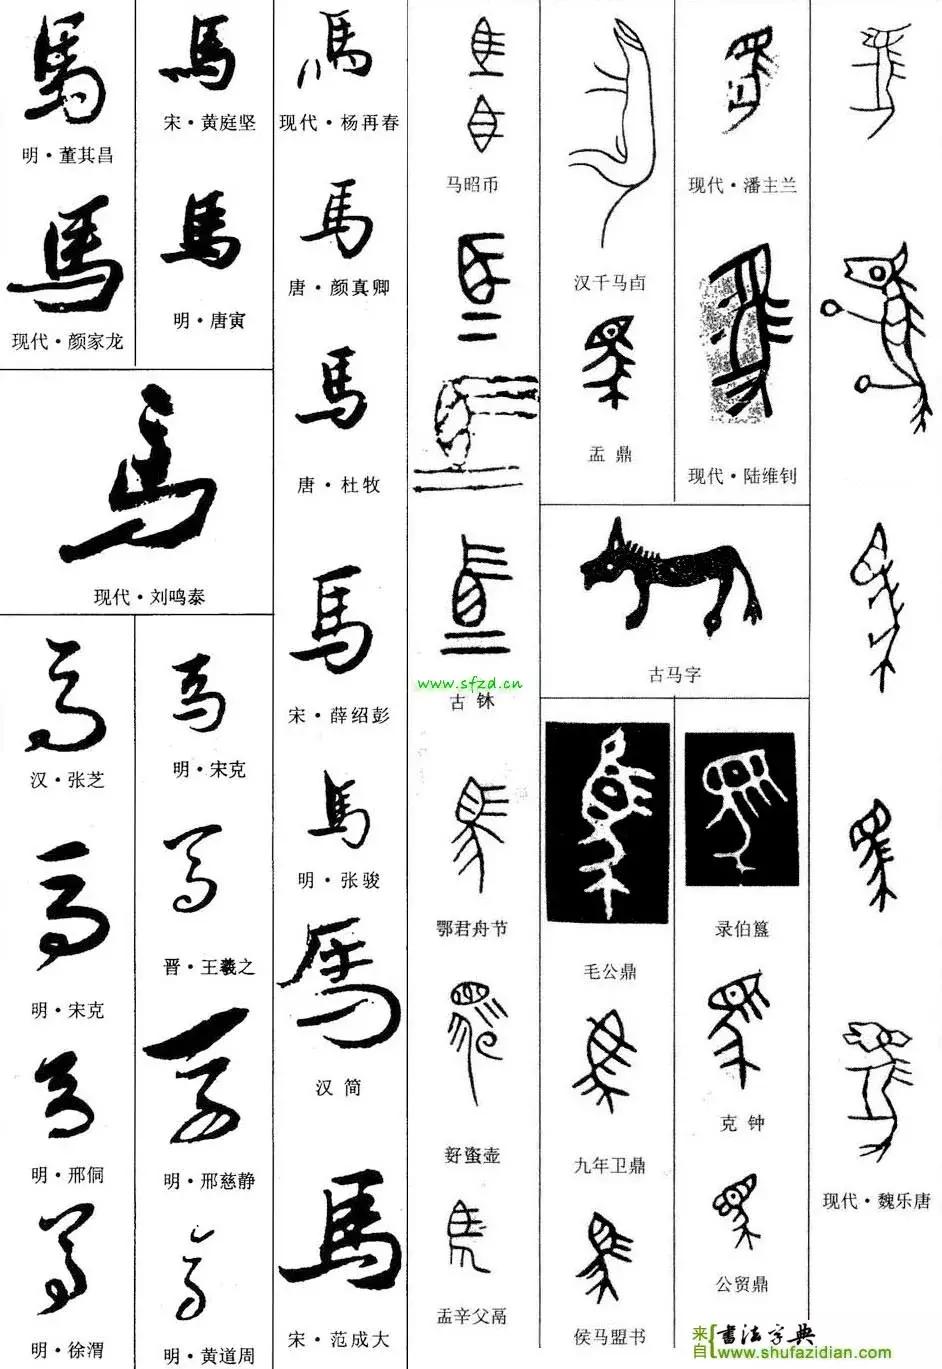 馬
明·董其昌
馬
现代·颜家龙
馬
宋·黄庭坚
馬
明·唐寅
馬
现代·刘鸣泰
馬
汉·张芝
馬
明·宋克
馬
明·邢侗
馬
明·徐渭
馬
明·宋克
馬
晋·王羲之
馬
明·邢慈静
馬
明·黄道周
馬
现代·杨再春
馬
唐·颜真卿
馬
唐·杜牧
馬
宋·薛绍彭
馬
明·张骏
馬
汉简
馬
宋·范成大
马昭币
古鉢
www.sfzd.cn
鄂君舟节
𧊒壶
盂辛父鬲
汉千马卣
盂鼎
古马字
毛公鼎
九年卫鼎
侯马盟书
现代·潘主兰
现代·陆维钊
录伯簋
克钟
公贸鼎
现代·魏乐唐
来自
书法字典
www.shufazidian.com